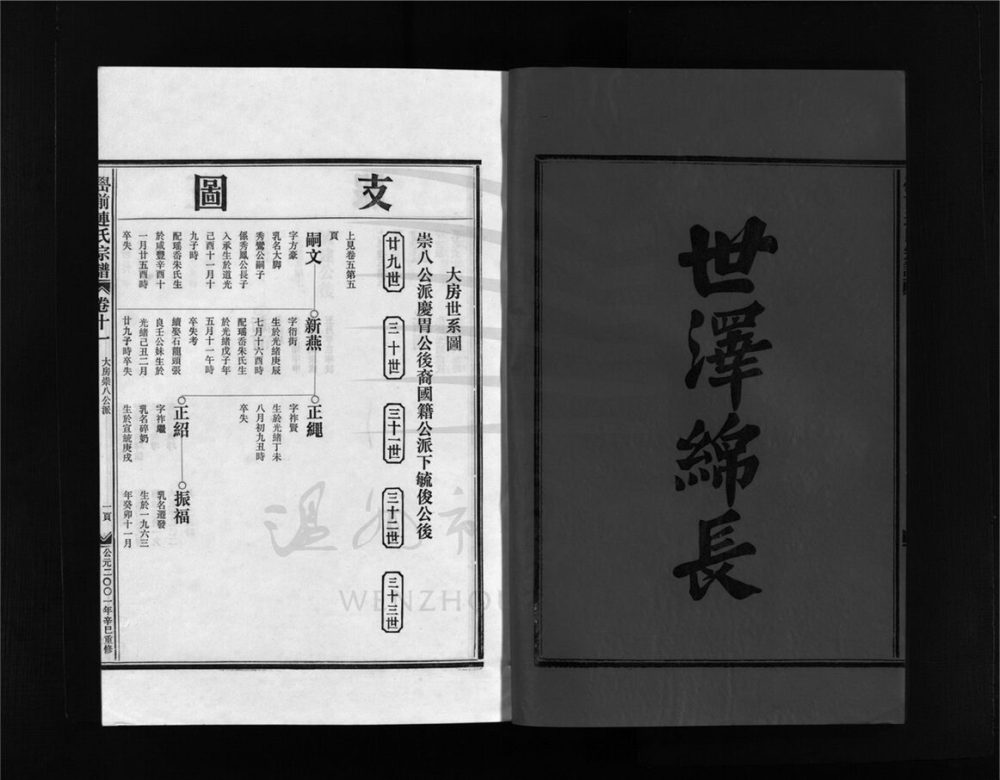 世澤綿長
支圖
大房世系圖
崇八公派慶胄公後裔國籍公派下毓俊公後
廿九世
三十世
三十一世
三十二世
三十三世
上見卷五第五
頁
嗣文
字方豪
乳名大脚
秀鸞公嗣子
係秀鳳公長子
入承生於道光
己酉十一月十
九子時
配瑤岙朱氏生
於咸豐辛酉十
一月廿五酉時
卒失
新燕
字衙街
生於光緒庚辰
七月十六酉時
配瑤岙朱氏生
於光緒戊子年
五月十一午時
卒失考
續娶石龍頭張
良壬公妹生於
光緒己丑二月
廿九子時卒失
正繩
字祚賢
生於光緒丁未
八月初九丑時
卒失
正紹
字祚繼
乳名碎奶
生於宣統庚戌
振福
乳名選發
生於一九六三
年癸卯十一月
前連氏宗譜
卷十一
大房崇八公派
一頁
公元二〇〇一年辛巳重修
溫州市
WENZHOU